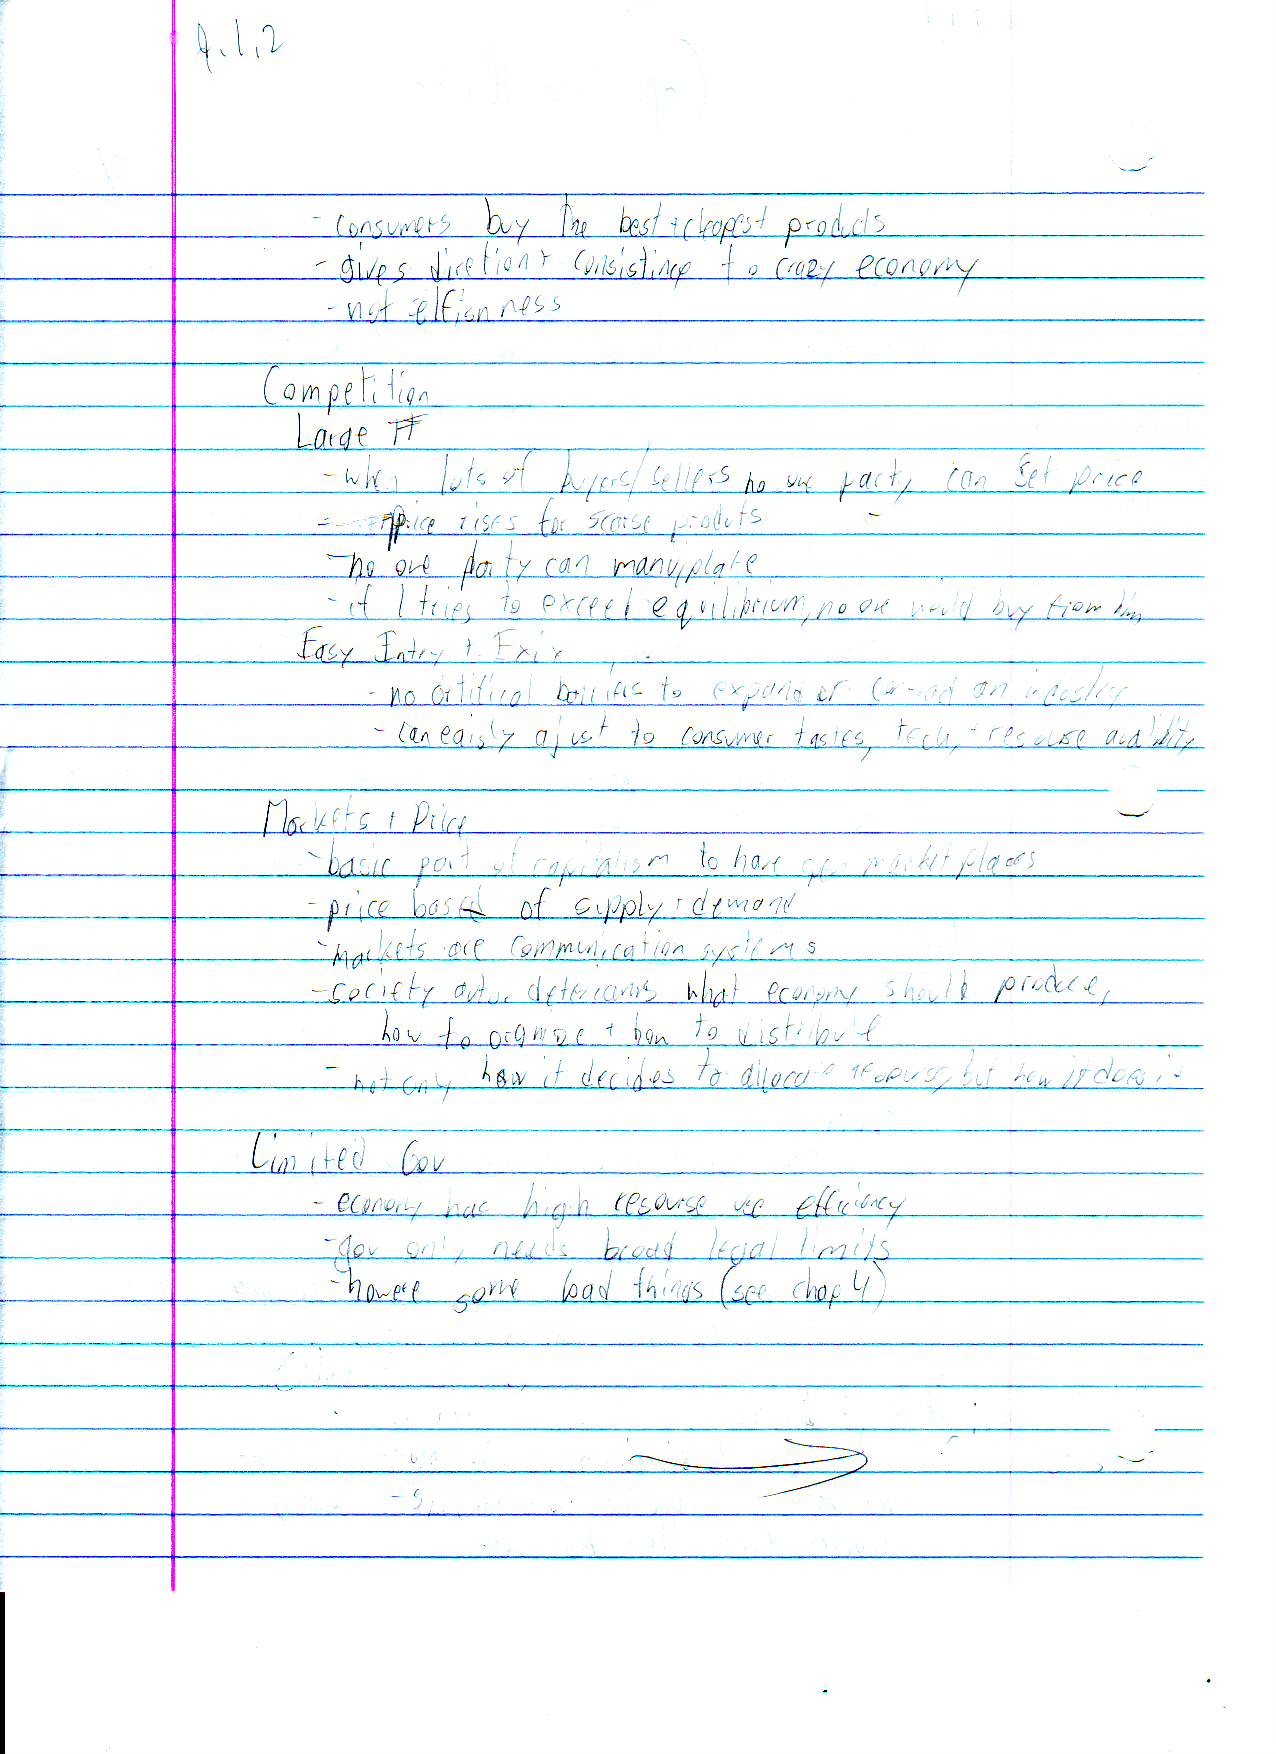 A.1.2
- consumers buy the best + cheapest products
- gives diretion + consistincy to crazy economy
- not selfishness
Competition
Large #
- when lots of buyers/sellers no one party can set price
- price rises for scarse produts
- no one party can manuiplate
- if 1 tries to exceed equilibrium, no one would buy from him
Easy Entry + Exit
- no artifical barriers to expand or an industry
- can eaisly ajust to consumer tastes, tech, + resourse
Markets + Price
- basic part of capitalism to have market places
- price based of supply + demand
- markets are communication systems
- society auto. what economy should produce,
how to orgnize + how to distribute
- not only how it decides to allocate resourses, but how it does it
Limited Gov
- economy has high resourse use efficiency
- gov only needs broad legal limits
- some bad things (see chap 4)